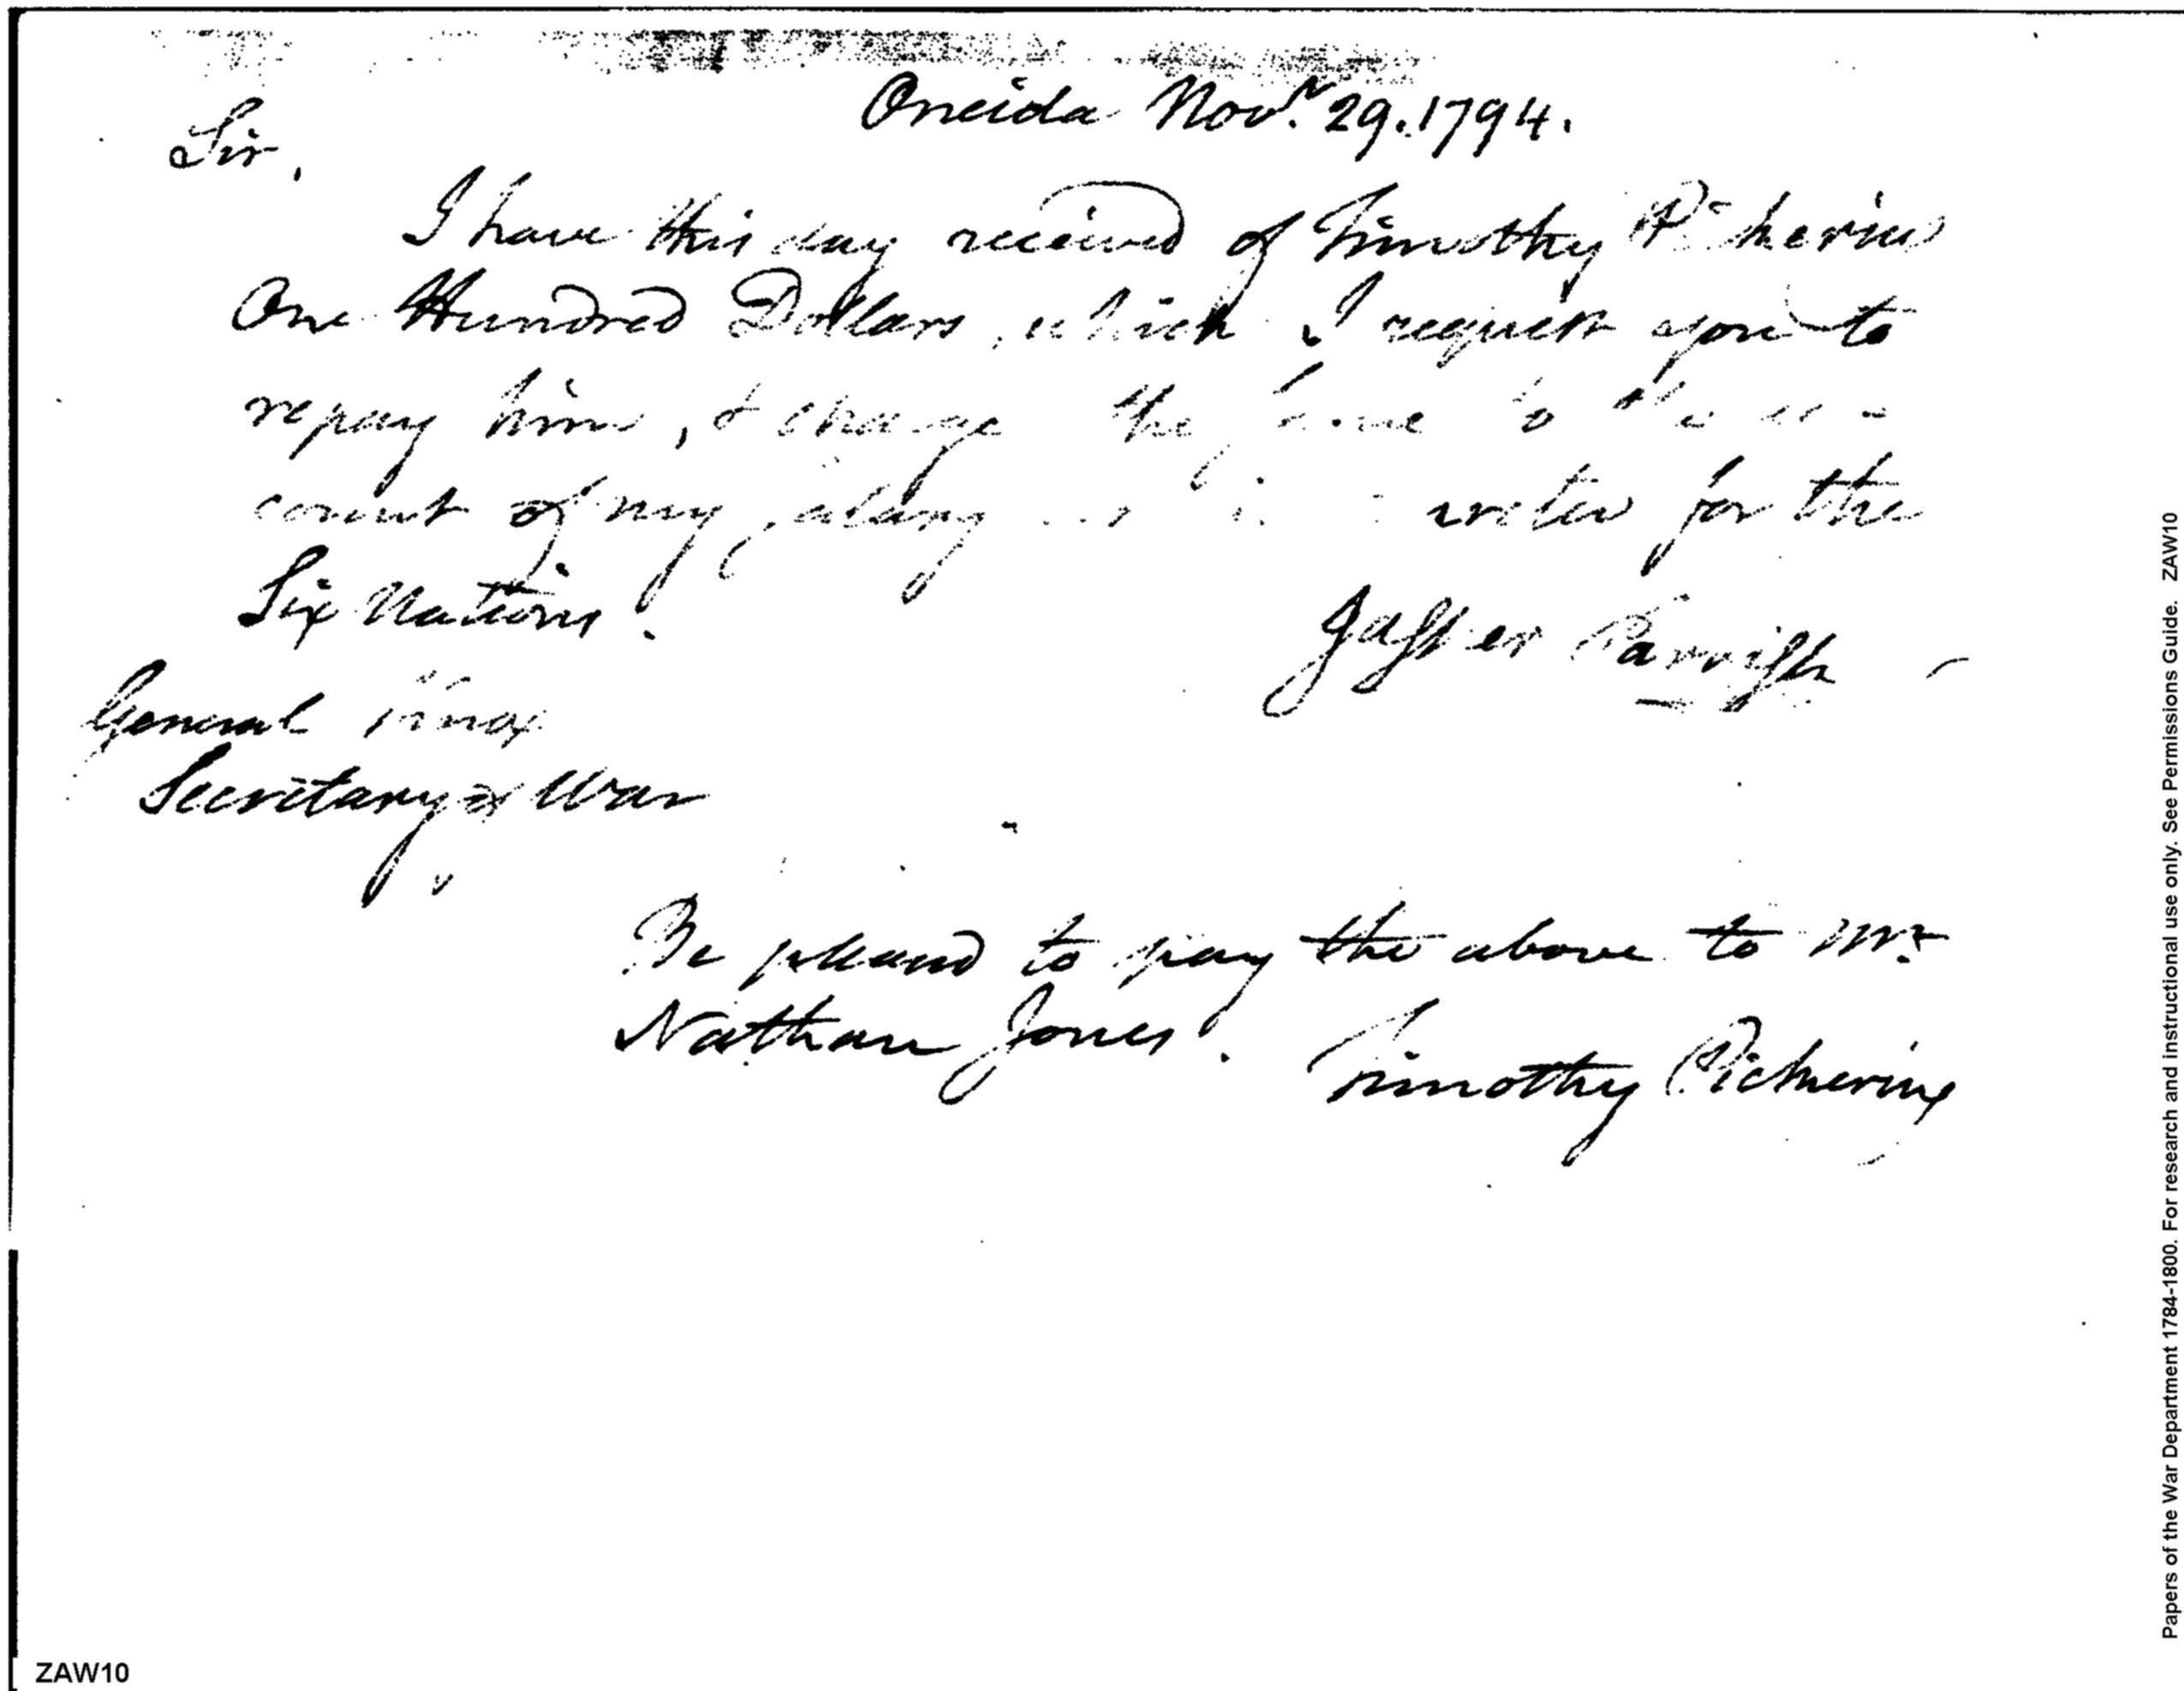 Oneida Novr. 29. 1794.
Sir,
I have this day received of Timothy Pickering
One Hundred Dollars, which I request you to
repay him, & charge the same to the ac-
count of my salary as for the
Six Nations.
Jasper Parrish
General Knox
Secretary of War
Be pleased to pay the above to Mr.
Nathan Jones.
Timothy Pickering
ZAW10
Papers of the War Department 1784-1800. For research and instructional use only. See Permissions Guide. ZAW10